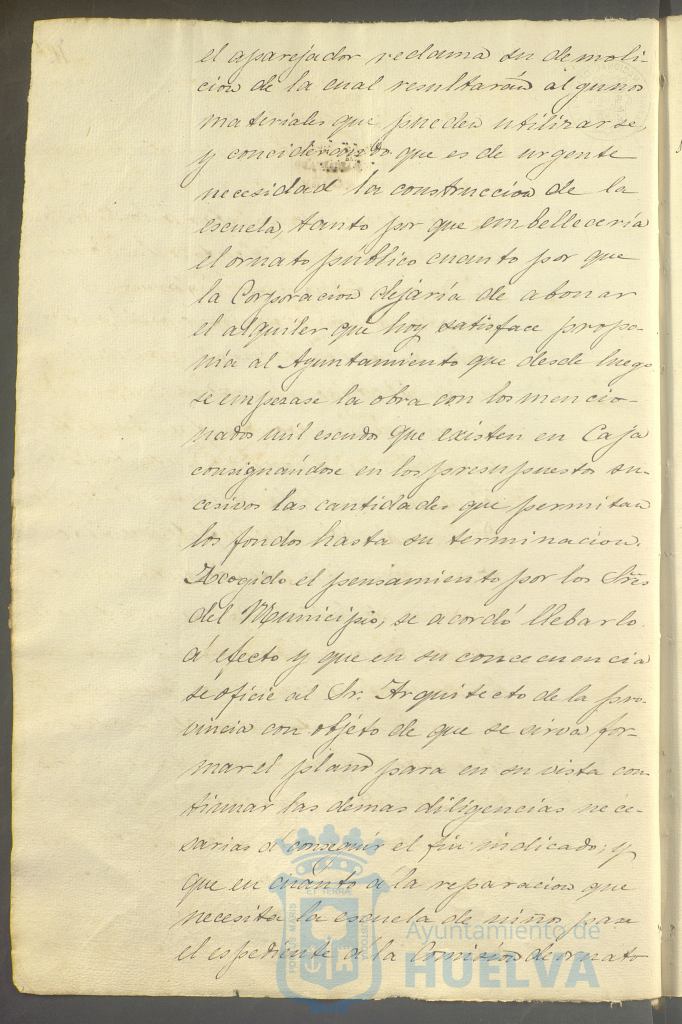 el aparejador reclama su demoli-
cion de la cual resultarán algunos
materiales que pueden utilizarse,
y concideraando que es de urgente
necesidad la construccion de la
escuela, tanto por que embelleceria
el ornato público cuanto por que
la Corporacion dejaría de abonar
el alquiler que hoy satisface propo-
nia al Ayuntamiento que desde luego
se empezase la obra con los mencio-
nados mil escudos que existen en Caja
consignandose en los presupuestos su-
cesivos las cantidades que permitan
los fondos hasta su terminacion.
Acogido el pensamiento por los Sres
del Municipio, se acordó llebarlo
á efecto y que en su concecuencia
se oficie al Sr. Arquitecto de la pro-
vincia con objeto de que se cirva for-
mar el plano para en su vista con-
tinuar las demas diligencias nece-
sarias á conseguir el fin indicado; y
que en cuanto á la reparacion que
necesita la escuela de niños pase
el espediente á la Comision de ornato
Ayuntamiento de
HUELVA